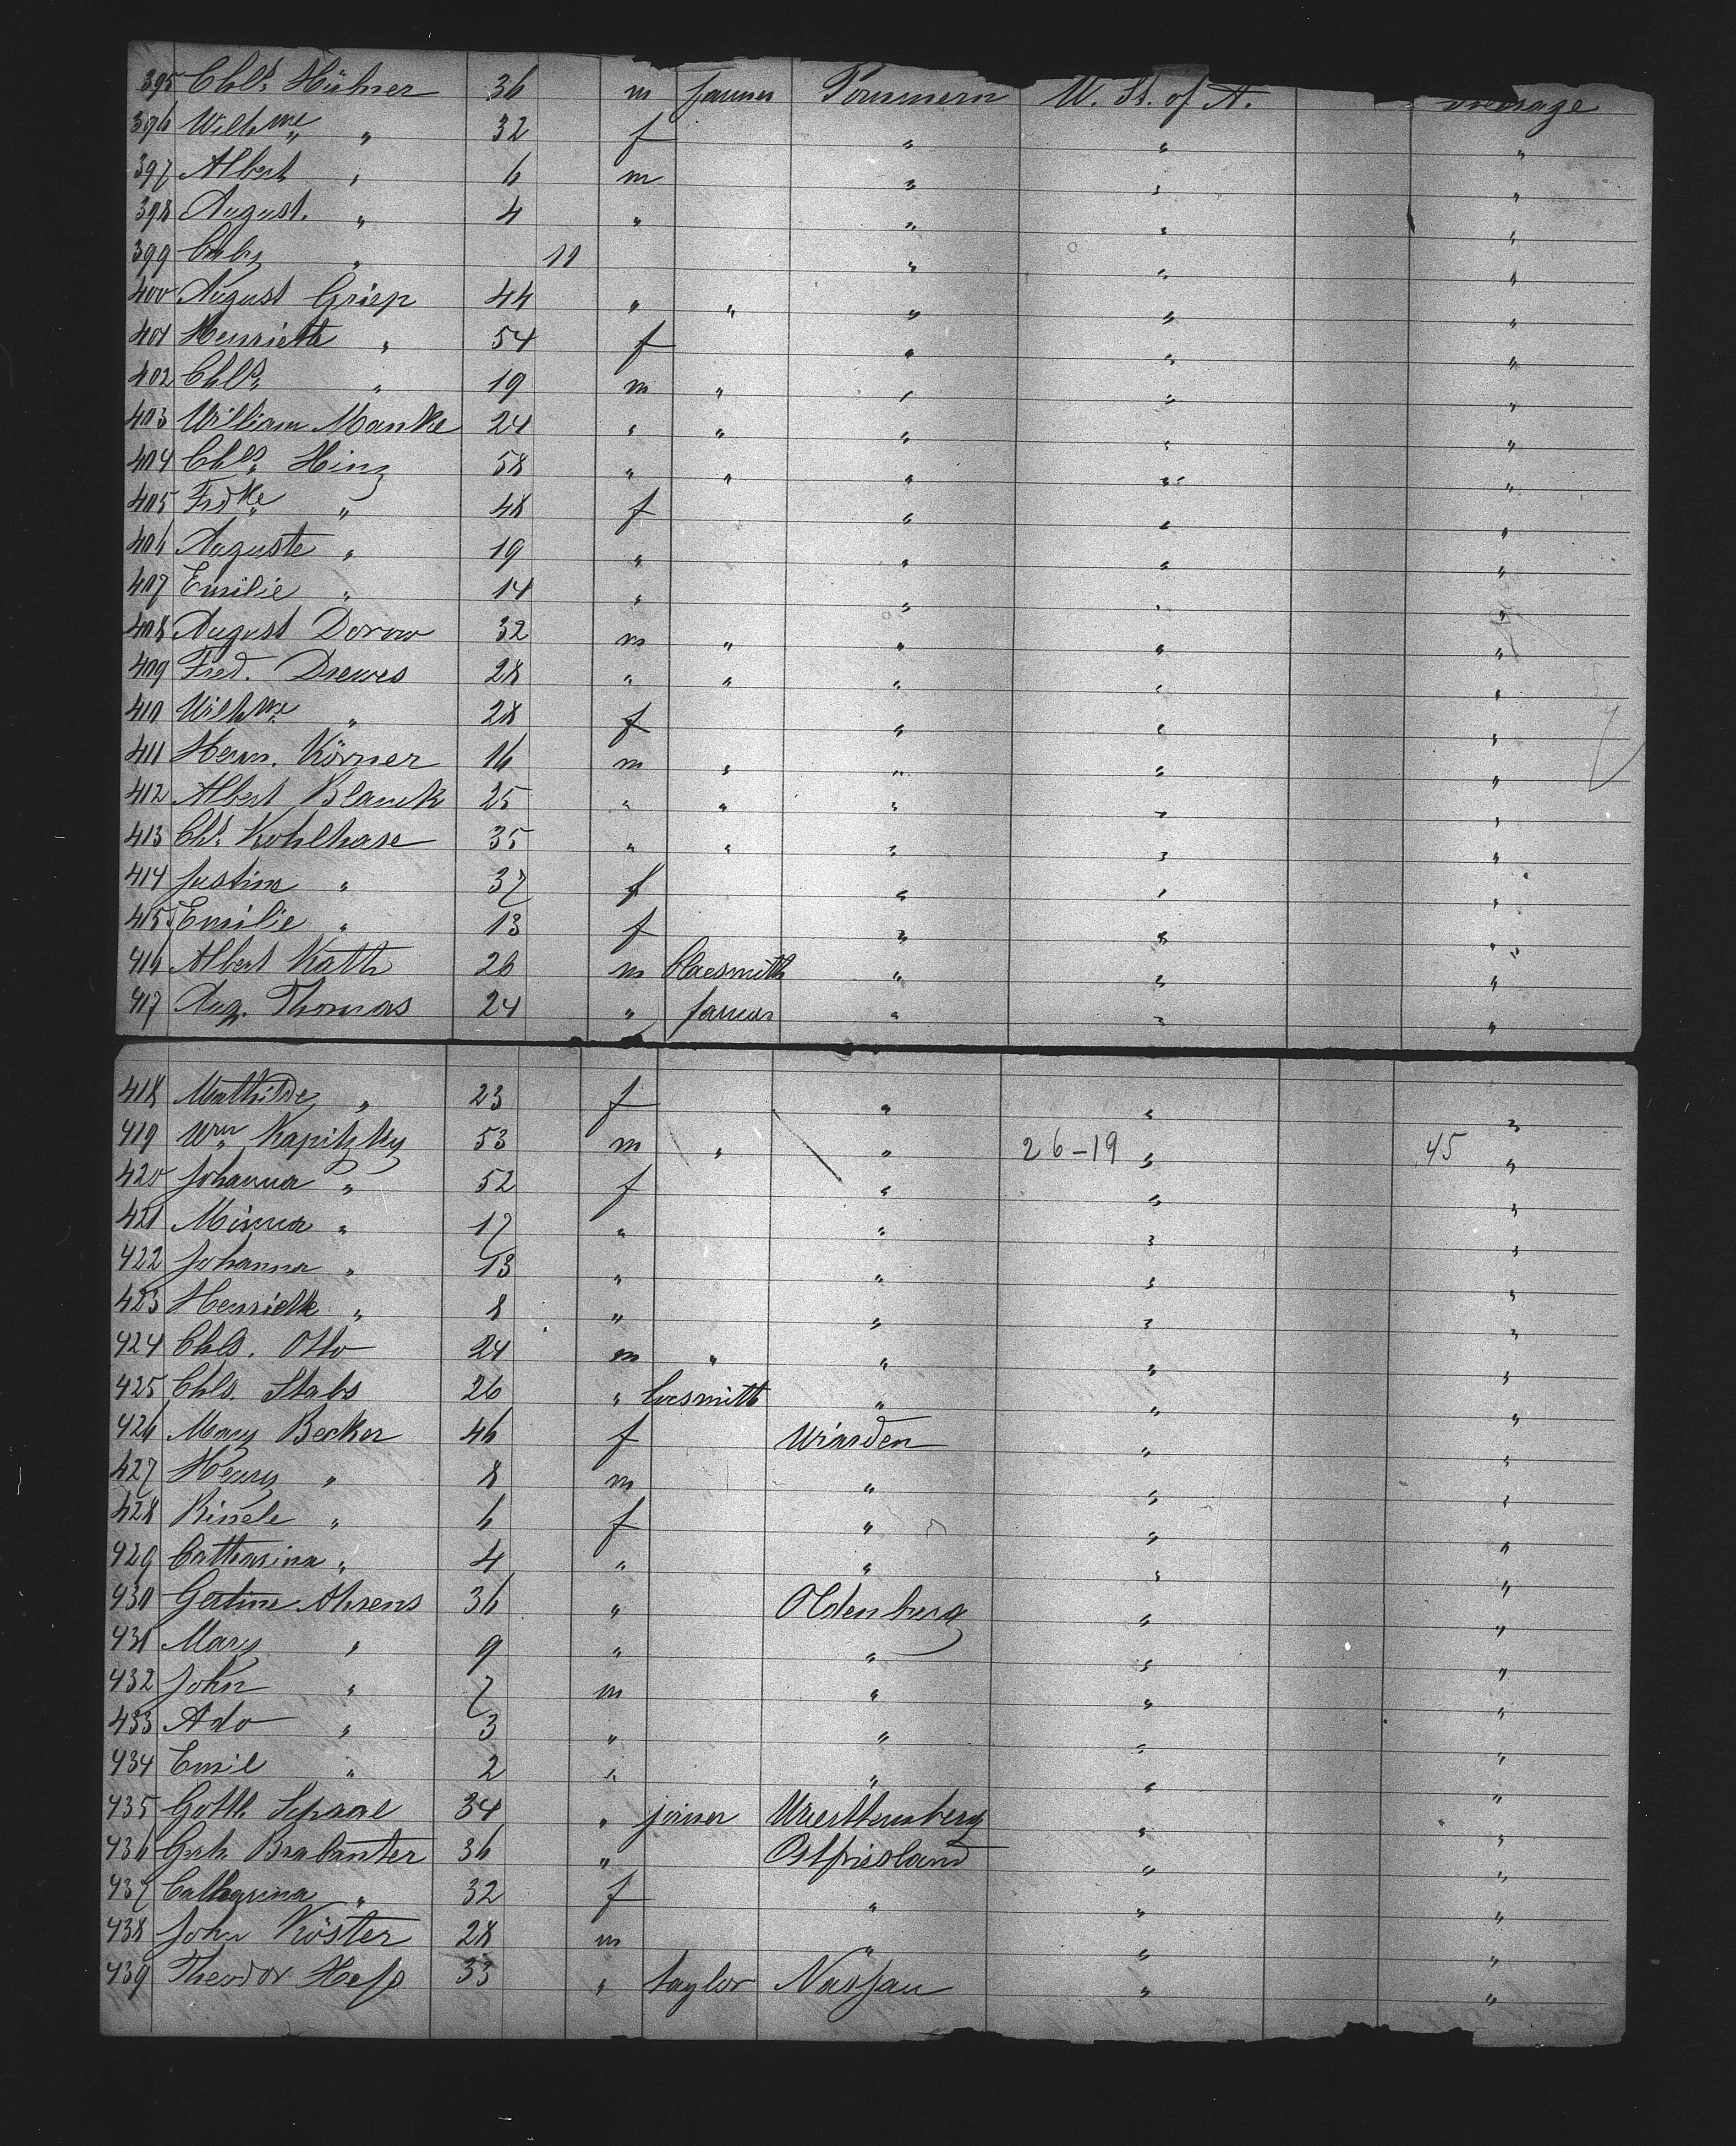 395 Chls. Hühner 36 m farmer Pommern U. St. of A. steerage
396 Wilhme " 32 f " " "
397 Albert " 6 m " " "
398 August. " 4 " " " "
399 " 11 " " "
400 August Griep 44 " " " " "
401 Henriette " 54 f " " "
402 Chls. " 19 m " " " "
403 William Manke 24 " " " " "
404 Chls. Hinz 58 " " " " "
405 Frdke " 48 f " " "
406 Auguste " 19 " " " "
407 Emilie " 14 " " " "
408 August Dorow 32 m " " " "
409 Fred. Drewes 28 " " " " "
410 Wilhme " 28 f " " "
411 Herm. Körner 16 m " " " "
412 Albert Blanck 25 " " " " "
413 Chs. Kohlhase 35 " " " " "
414 Justine " 37 f " " "
415 Emilie " 13 f " " "
416 Albert Kath 26 m blacsmith " " "
417 Aug. Thomas 24 " farmer " " "
418 Mathilde " 23 f " " "
419 Wm Kapitzky 53 m " " 26-19 " 45 "
420 Johanna " 52 f " " "
421 Minna " 17 " " " "
422 Johanna " 13 " " " "
423 Henriette " 8 " " " "
424 Chls. Otto 24 m " " " "
425 Chls. Stabs 26 " " " "
426 Mary Becker 46 f " "
427 Henry " 8 m " " "
428 " 6 f " " "
429 Catharina " 4 " " " "
430 Gertine Ahrens 36 " Oldenburg " "
431 Mary " 9 " " " "
432 John " 7 m " " "
433 Ado " 3 " " " "
434 Emil " 2 " " " "
435 Gottl. Schaal 34 " joiner Wuerttemberg " "
436 Gerh. Brabanter 36 " Ostfriesland " "
437 Catharina " 32 f " " "
438 John Köster 28 m " " "
439 Theodor Heß 33 " taylor Nassau " "